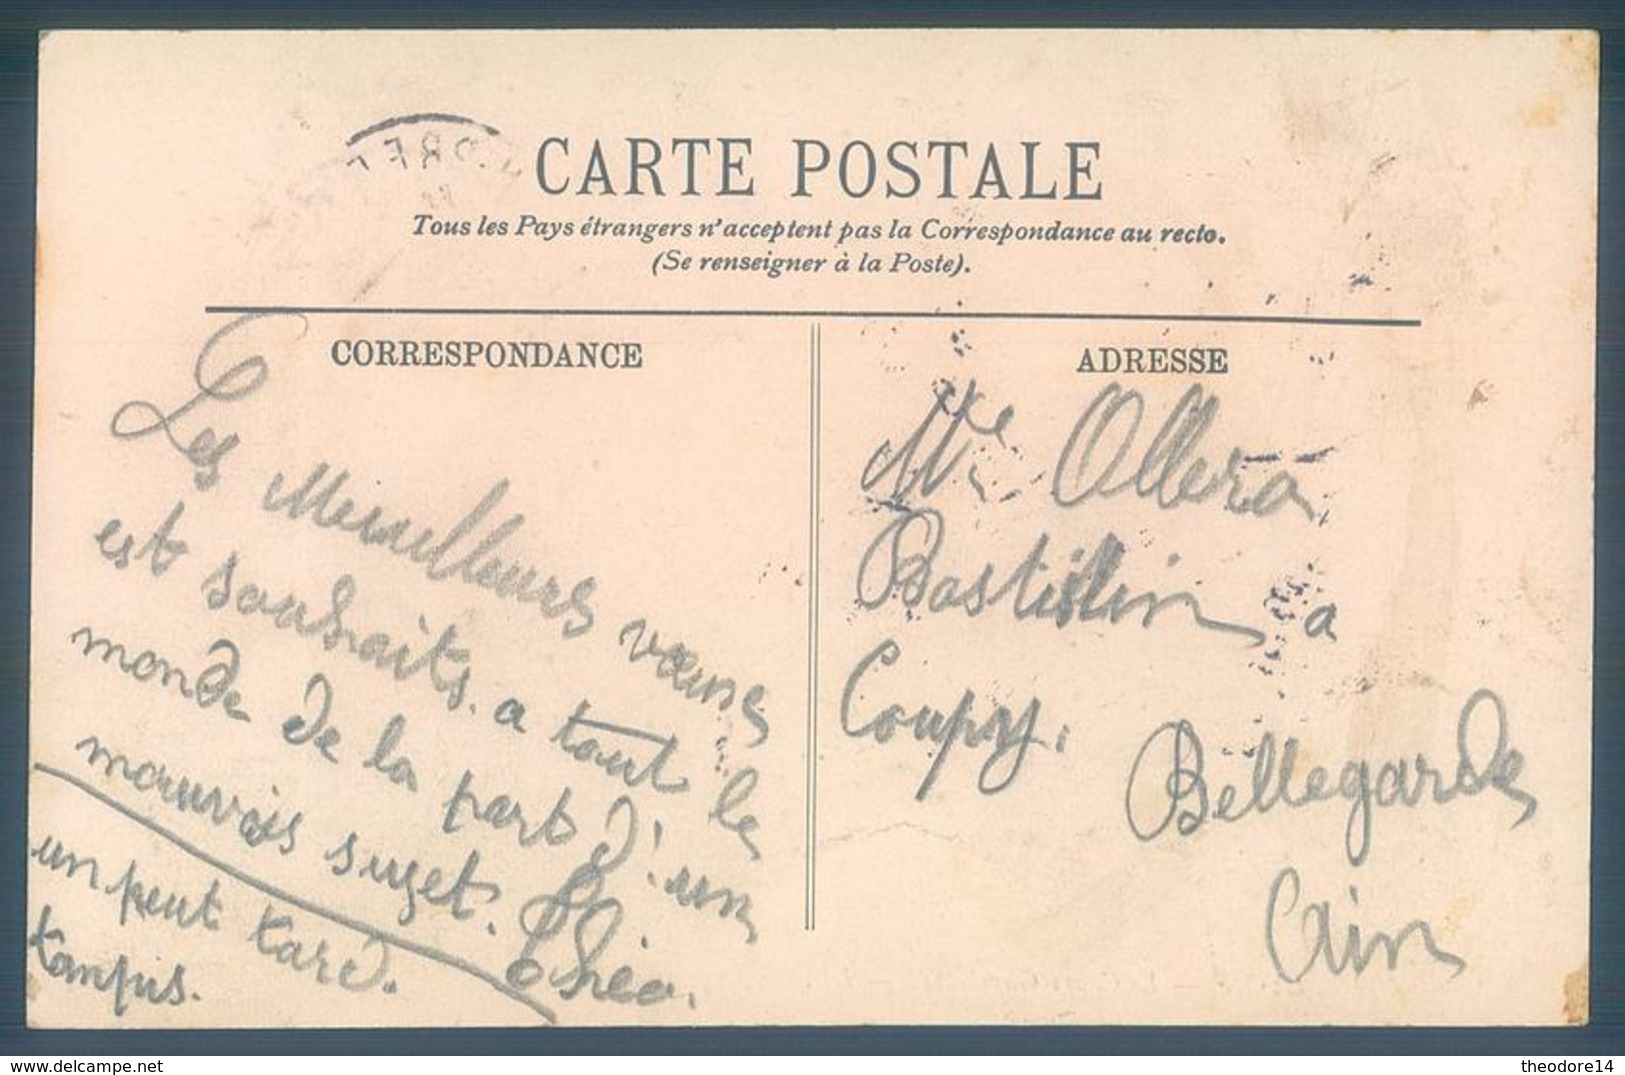 CARTE POSTALE
Tous les Pays étrangers n'acceptent pas la Correspondance au recto.
(Se renseigner à la Poste).
CORRESPONDANCE
Les Meuilleurs vœux
est souhaits. a tout le
monde de la part d'un
mauvais sujet. Théo.
un peut tard.
tanpis.
ADRESSE
Mme Ollera
Bastillin a
Coupy.
Bellegarde
Ain
delcampe.net
theodore14